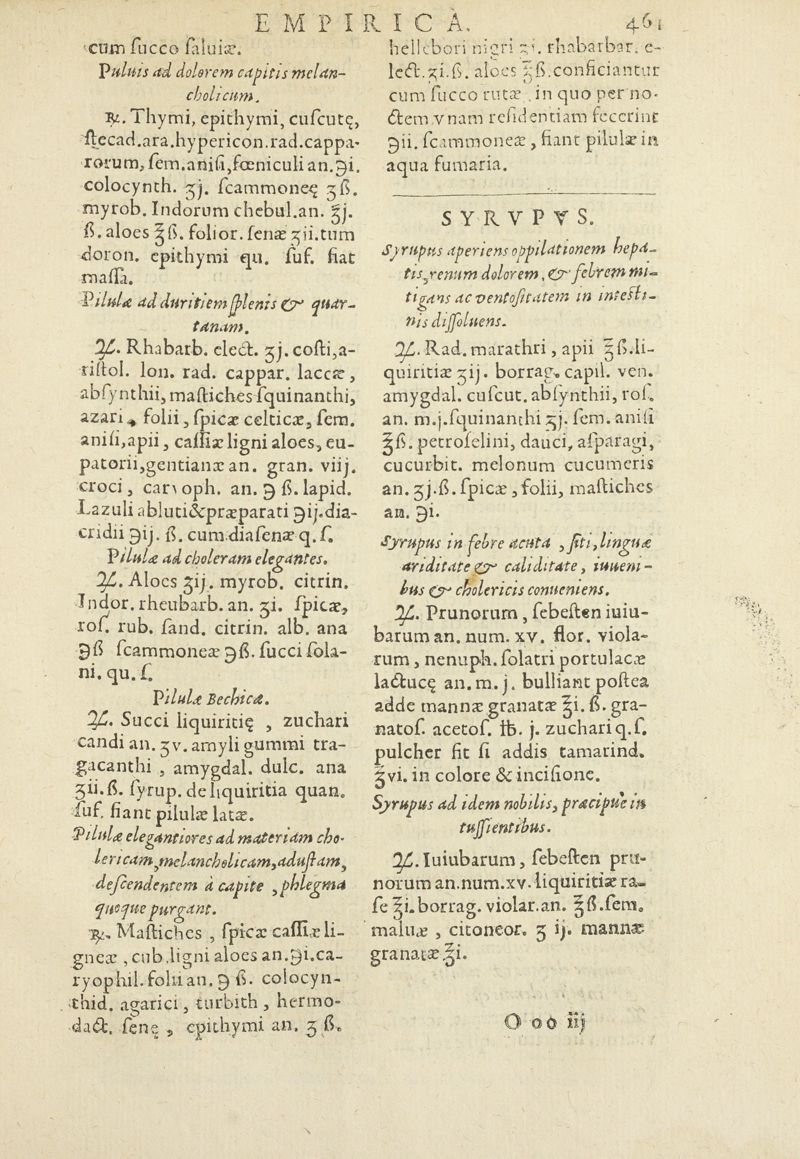 EMPIRICA. 461
cum ſucco ſaluiæ.
Puluis ad dolorem capitis melan-
cholicum.
℞. Thymi, epithymi, cuſcutę,
ſtecad.ara.hypericon.rad.cappa-
rorum, ſem.aniſi,fœniculi an.℈i.
colocynth. ʒj. ſcammoneę ʒß.
myrob. Indorum chebul.an. ℥j.
ß. aloes ℥ß. folior. ſenæ ʒii.tum
doron. epithymi qu. ſuf. fiat
maſſa.
Pilulæ ad duritiem ſplenis & quar-
tanam.
℞. Rhabarb. elect. ʒj. coſti,a-
riſtol. lon. rad. cappar. laccæ,
abſynthii, maſtiches ſquinanthi,
azari, folii, ſpicæ celticæ, ſem.
aniſi,apii, caſſiæ ligni aloes, eu-
patorii,gentianæ an. gran. viij.
croci, caryoph. an. ℈ ß. lapid.
Lazuli abluti&præparati ℈ij.dia-
cridii ℈ij. ß. cum diaſenæ q.ſ.
Pilulæ ad choleram elegantes.
℞. Aloes ʒij. myrob. citrin.
Indor. rheubarb. an. ʒi. ſpicæ,
roſ. rub. ſand. citrin. alb. ana
℈ß ſcammoneæ ℈ß. ſucci ſola-
ni. qu.ſ.
Pilulæ Bechicæ.
℞. Succi liquiritię , zuchari
candi an. ʒv. amyli gummi tra-
gacanthi , amygdal. dulc. ana
ʒii.ß. ſyrup. de liquiritia quan.
ſuf. fiant pilulæ latæ.
Pilulæ elegantiores ad materiam cho-
lericam,melancholicam,aduſtam,
deſcendentem à capite , phlegma
quoque purgant.
℞. Maſtiches , ſpicæ caſſiæ li-
gneæ , cub.ligni aloes an.℈i.ca-
ryophil.folii an. ℈ ß. colocyn-
thid. agarici, turbith , hermo-
dact. ſenę , epithymi an. ʒ ß.
hellebori nigri ʒi. rhabarbar. e-
lect.ʒi.ß. aloes ℥ß.conficiantur
cum ſucco rutæ , in quo per no-
ctem vnam reſidentiam fecerint
℈ii. ſcammoneæ , fiant pilulæ in
aqua fumaria.
SYRVPVS.
Syrupus aperiens oppilationem hepa-
tis,renum dolorem, & febrem mi-
tigans ac ventoſitatem in inteſti-
nis diſſoluens.
℞. Rad. marathri , apii ℥ß.li-
quiritiæ ʒij. borrag. capil. ven.
amygdal. cuſcut. abſynthii, roſ.
an. m.j.ſquinanthi ʒj. ſem. aniſi
℥ß. petroſelini, dauci, aſparagi,
cucurbit. melonum cucumeris
an. ʒj.ß. ſpicæ , folii, maſtiches
an. ℈i.
Syrupus in febre acuta , ſiti, linguæ
ariditate & caliditate , iuueni-
bus & cholericis conueniens.
℞. Prunorum , ſebeſten iuiu-
barum an. num. xv. flor. viola-
rum , nenuph. ſolatri portulacæ
lactucę an. m. j. bulliant poſtea
adde mannæ granatæ ℥i. ß. gra-
natoſ. acetoſ. ℔. j. zuchari q.ſ.
pulcher fit ſi addis tamarind.
℥vi. in colore & inciſione.
Syrupus ad idem nobilis, præcipuè in
tuſſientibus.
℞. Iuiubarum , ſebeſten pru-
norum an.num.xv. liquiritiæ ra-
ſe ℥i. borrag. violar.an. ℥ß.ſem.
maluæ , citoneor. ʒ ij. mannæ
granatæ ℥i.
Ooo iij